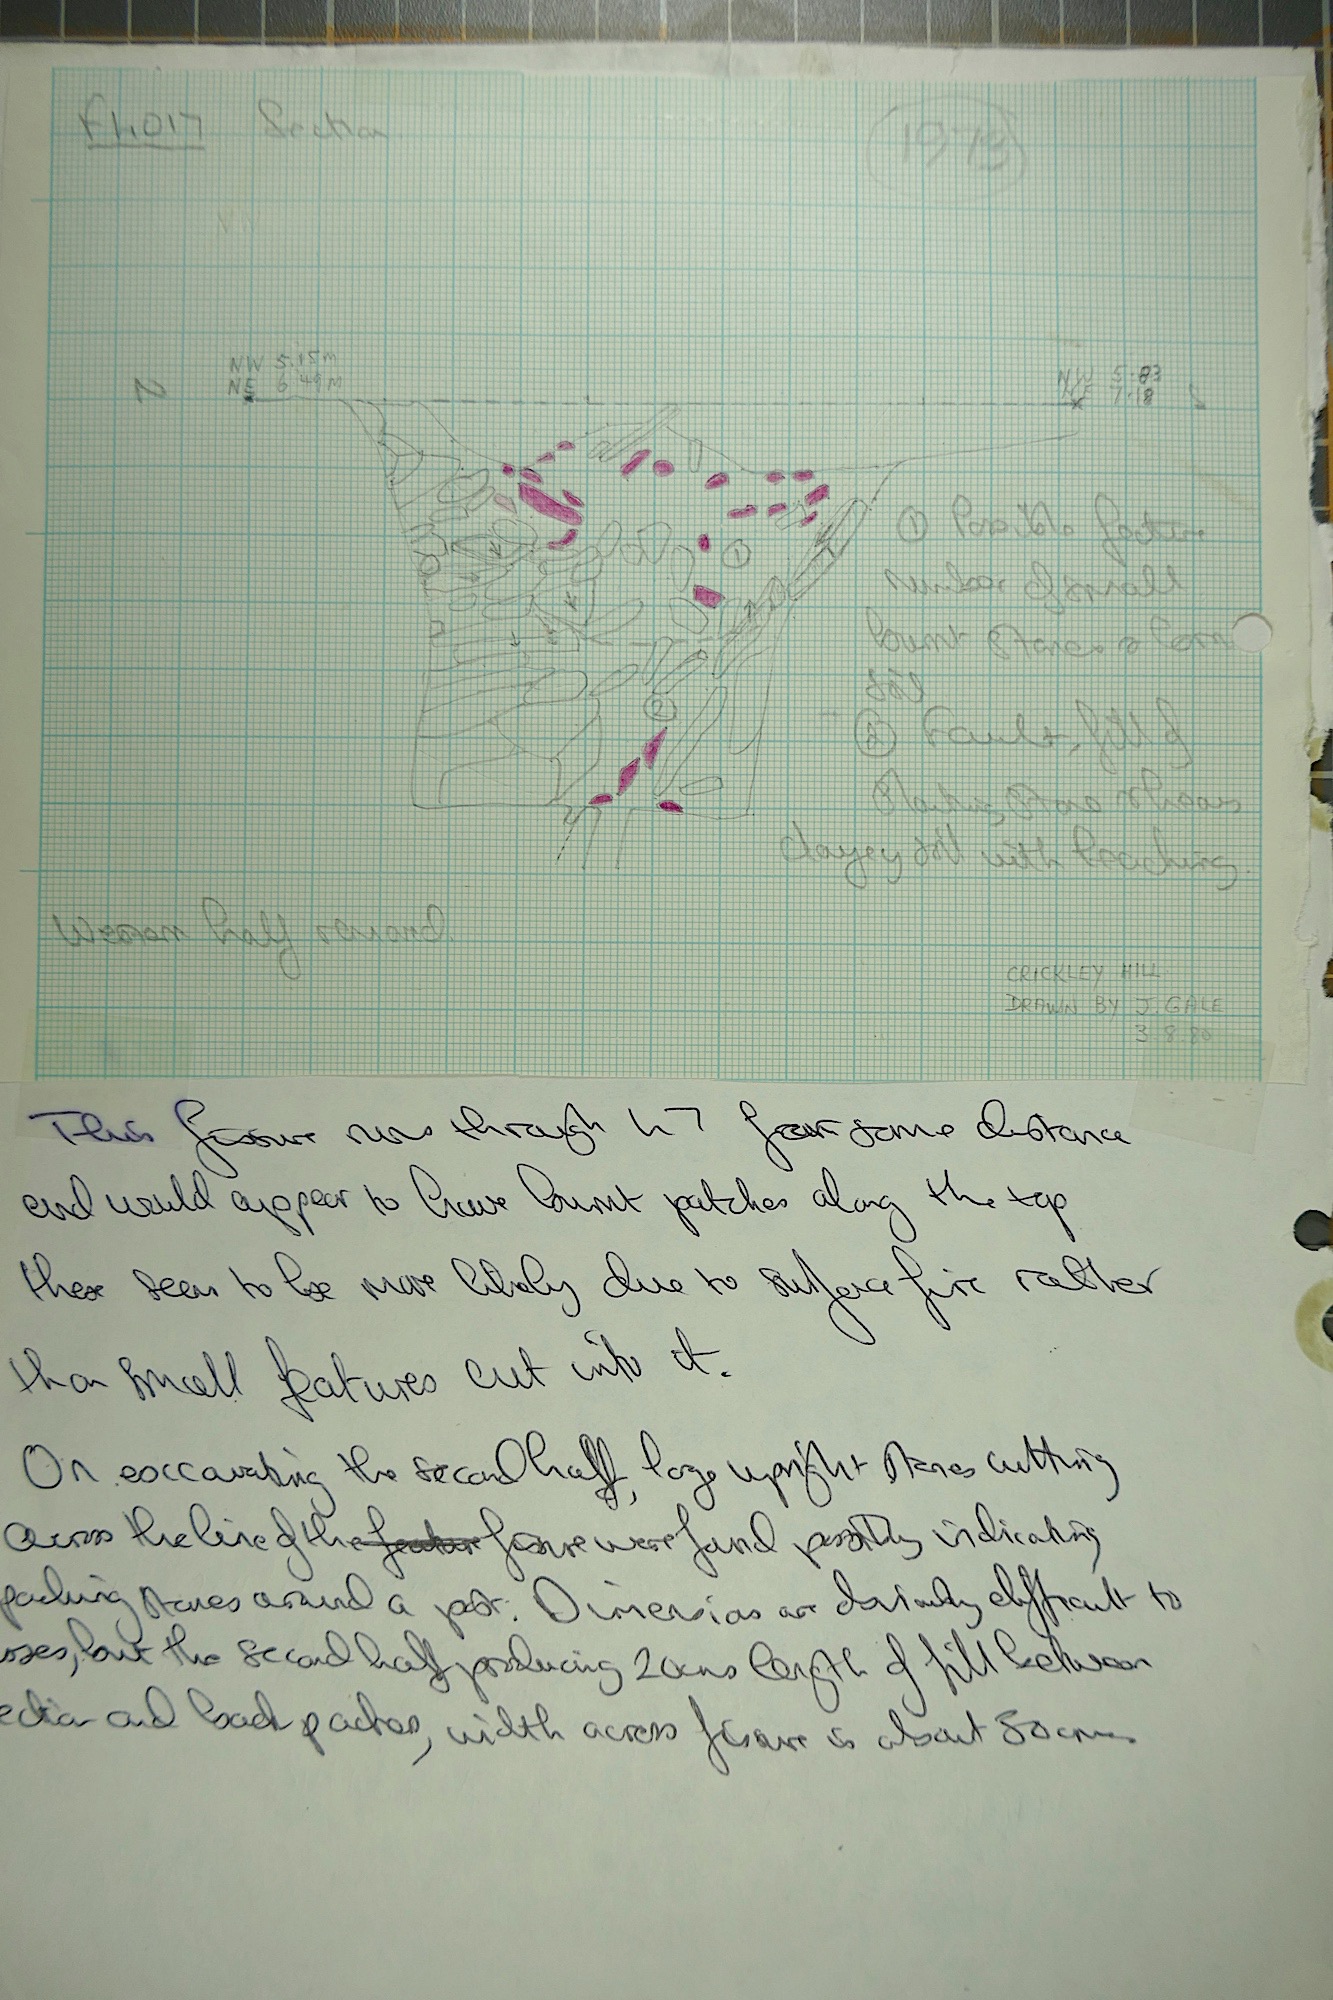 F4017 Section
1973
NW 5.15m
NE 6.49m
N
NW 5.83
NE 7.18
S
① Possible feature
number of small
burnt stones & loam
soil
②
① 
② Fault, fill of
stone & loess
clayey soil with leaching.
Western half removed.
CRICKLEY HILL
DRAWN BY J. GALE
3.8.80
This fissure runs through h7 for some distance
and would appear to have burnt patches along the top
these seem to be more likely due to surface fire rather
than small features cut into it.
On excavating the second half, large upright stones cutting
across the line of the feature fissure were found possibly indicating
packing stones around a post. Dimensions are obviously difficult to
but the second half producing 20cms length of fill between
and back packing, width across fissure is about 50cms